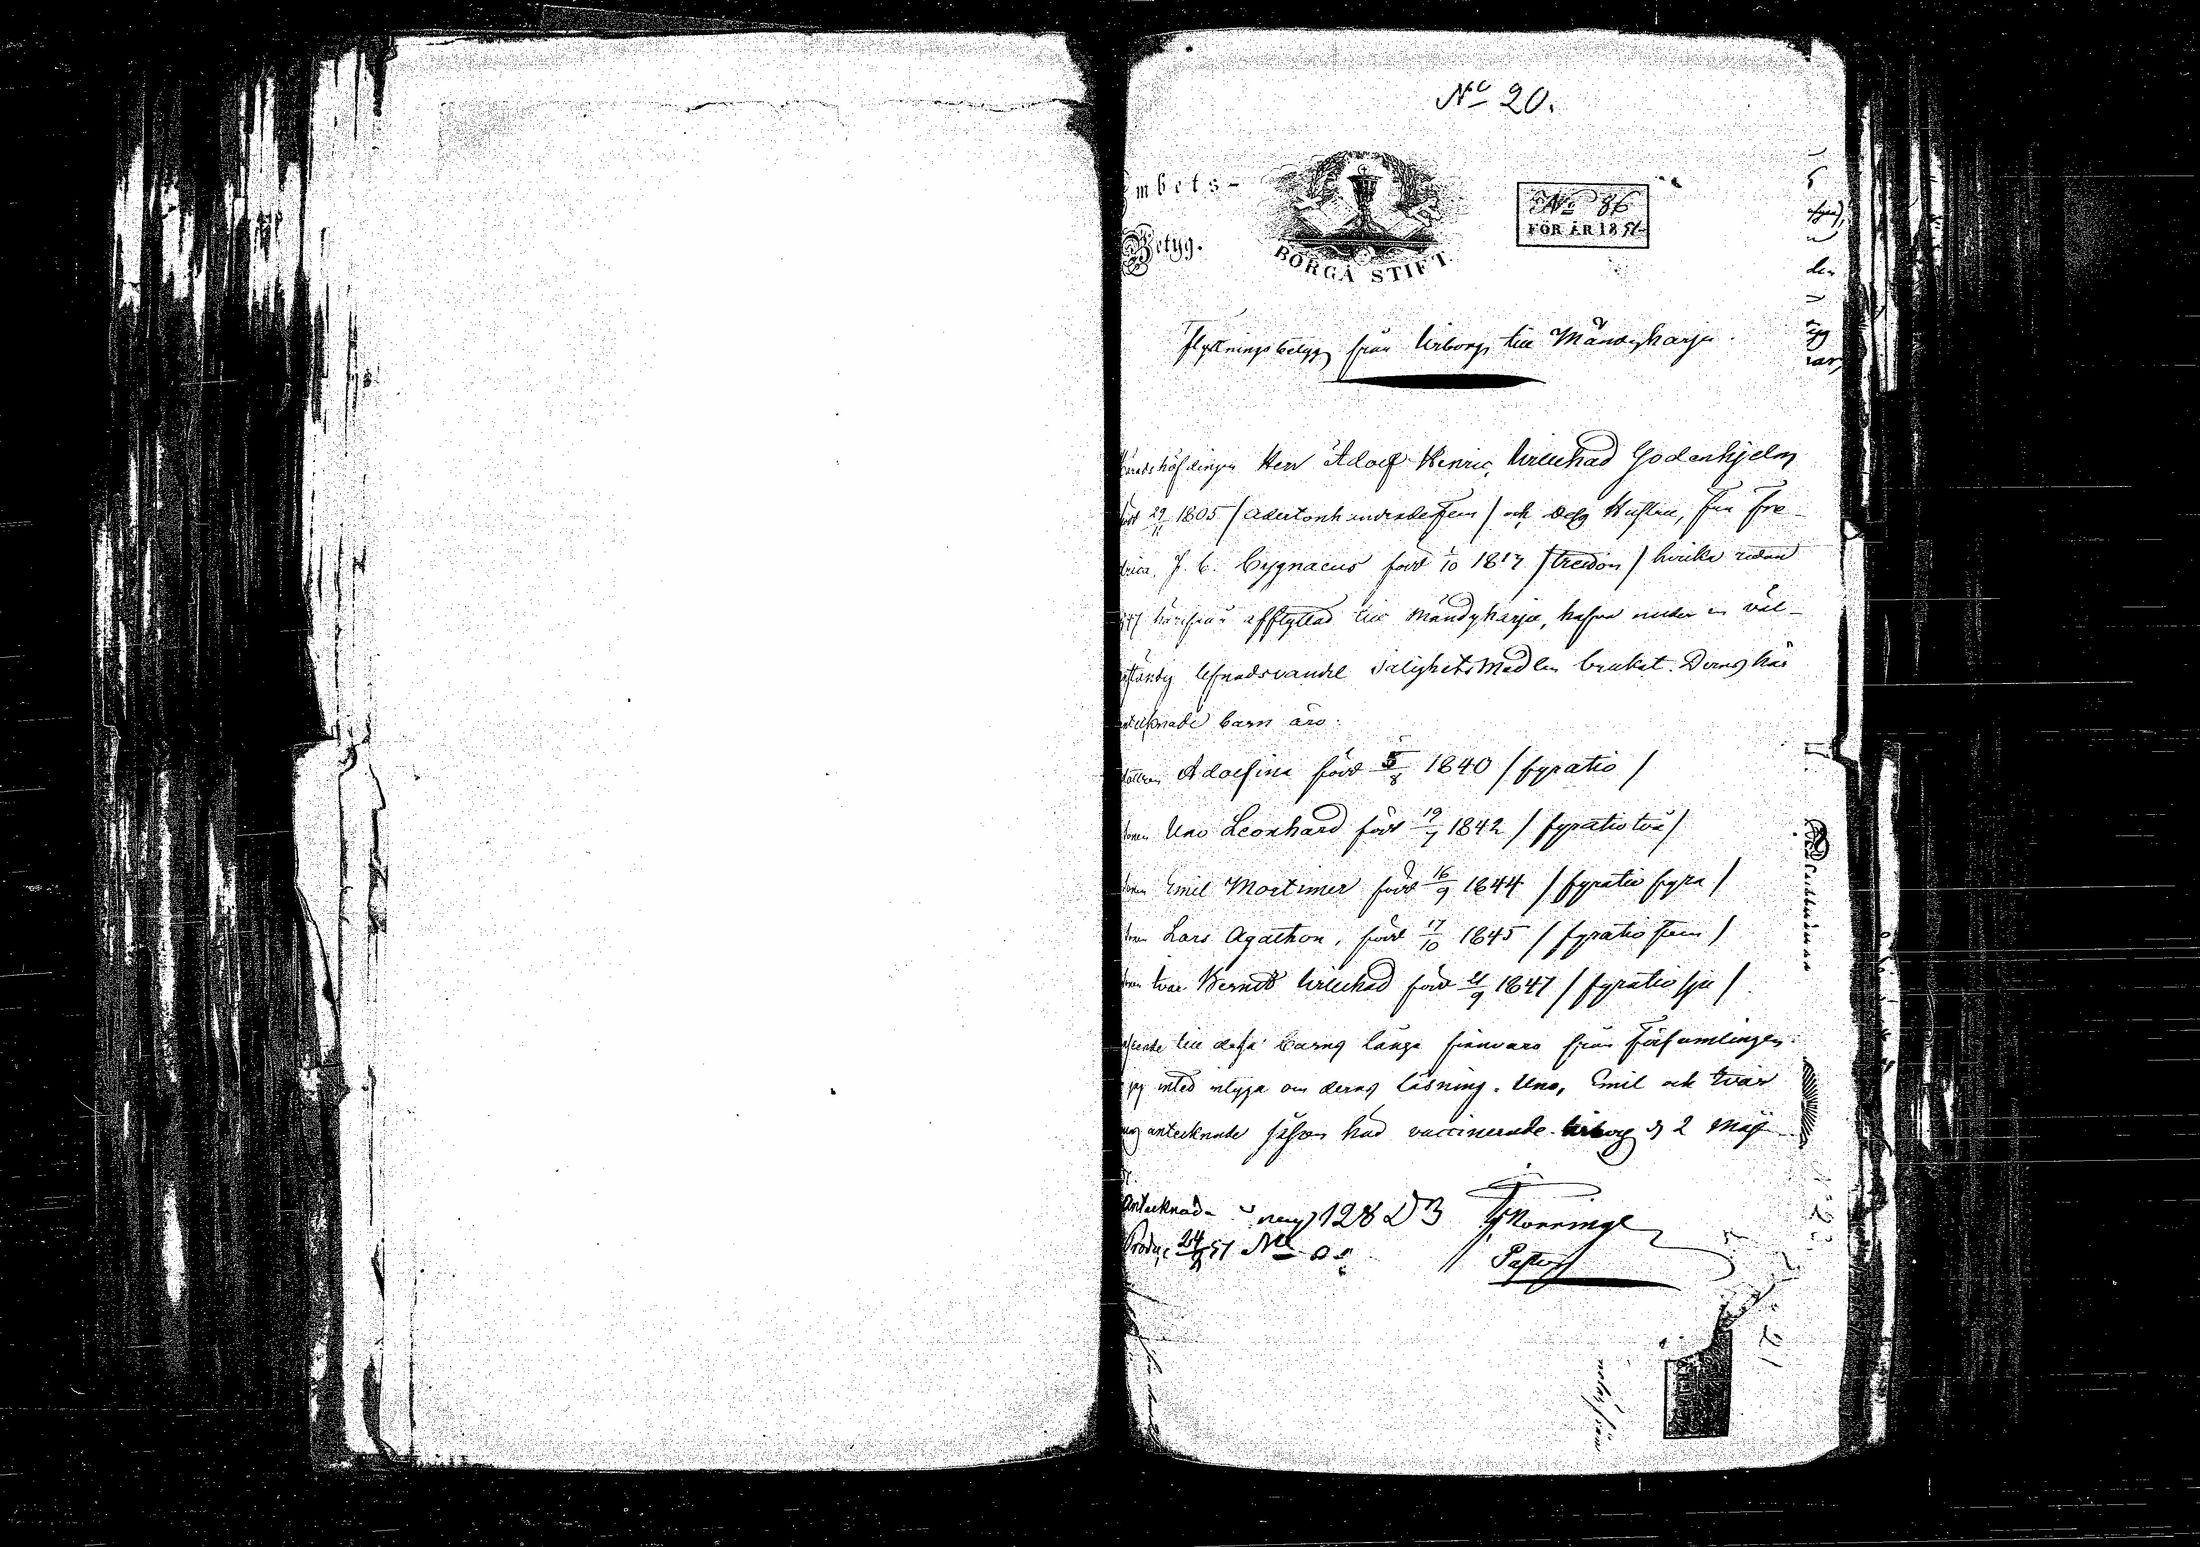 No 20.
mbets-
Betyg.
BORGÅ STIFT
No 86
FÖR ÅR 1851
Flyttningsbetyg från Wiborg till Mäntyharju.
Häradshöfdingen Herr Adolf Henric Wilhad Godenhjelm
född 29/11 1805 / adertonhundradefem / och dess Hustru, Fru Fre-
drica J. C. Cygnaeus född 1/10 1817 hvilka redan
härifrån afflyttad till Mändyharju, hafva under en väl-
anständig lefnadsvandel salighetsmedlen brukat. Deras här
antecknade barn äro:
dottren Adolfina född 5/8 1840 / fyratio /
sonen Uno Leonhard född 19/7 1842 / fyratiotvå /
sonen Emil Mortimer född 16/9 1844 / fyratio fyra /
sonen Lars Agathon, född 17/10 1845 / fyratio fem /
sonen Ivar Berndt Wilhad född 21/9 1847 / fyratio sju /
till dessa barns långa frånvaro från Församlingen
jag intet intyga om deras läsning. Uno, Emil och Ivar
antecknade såsom här vaccinerade. Wiborg d 2 Maji
Antecknad 128 D3
Produc 24/51 No
Pastor
No 21